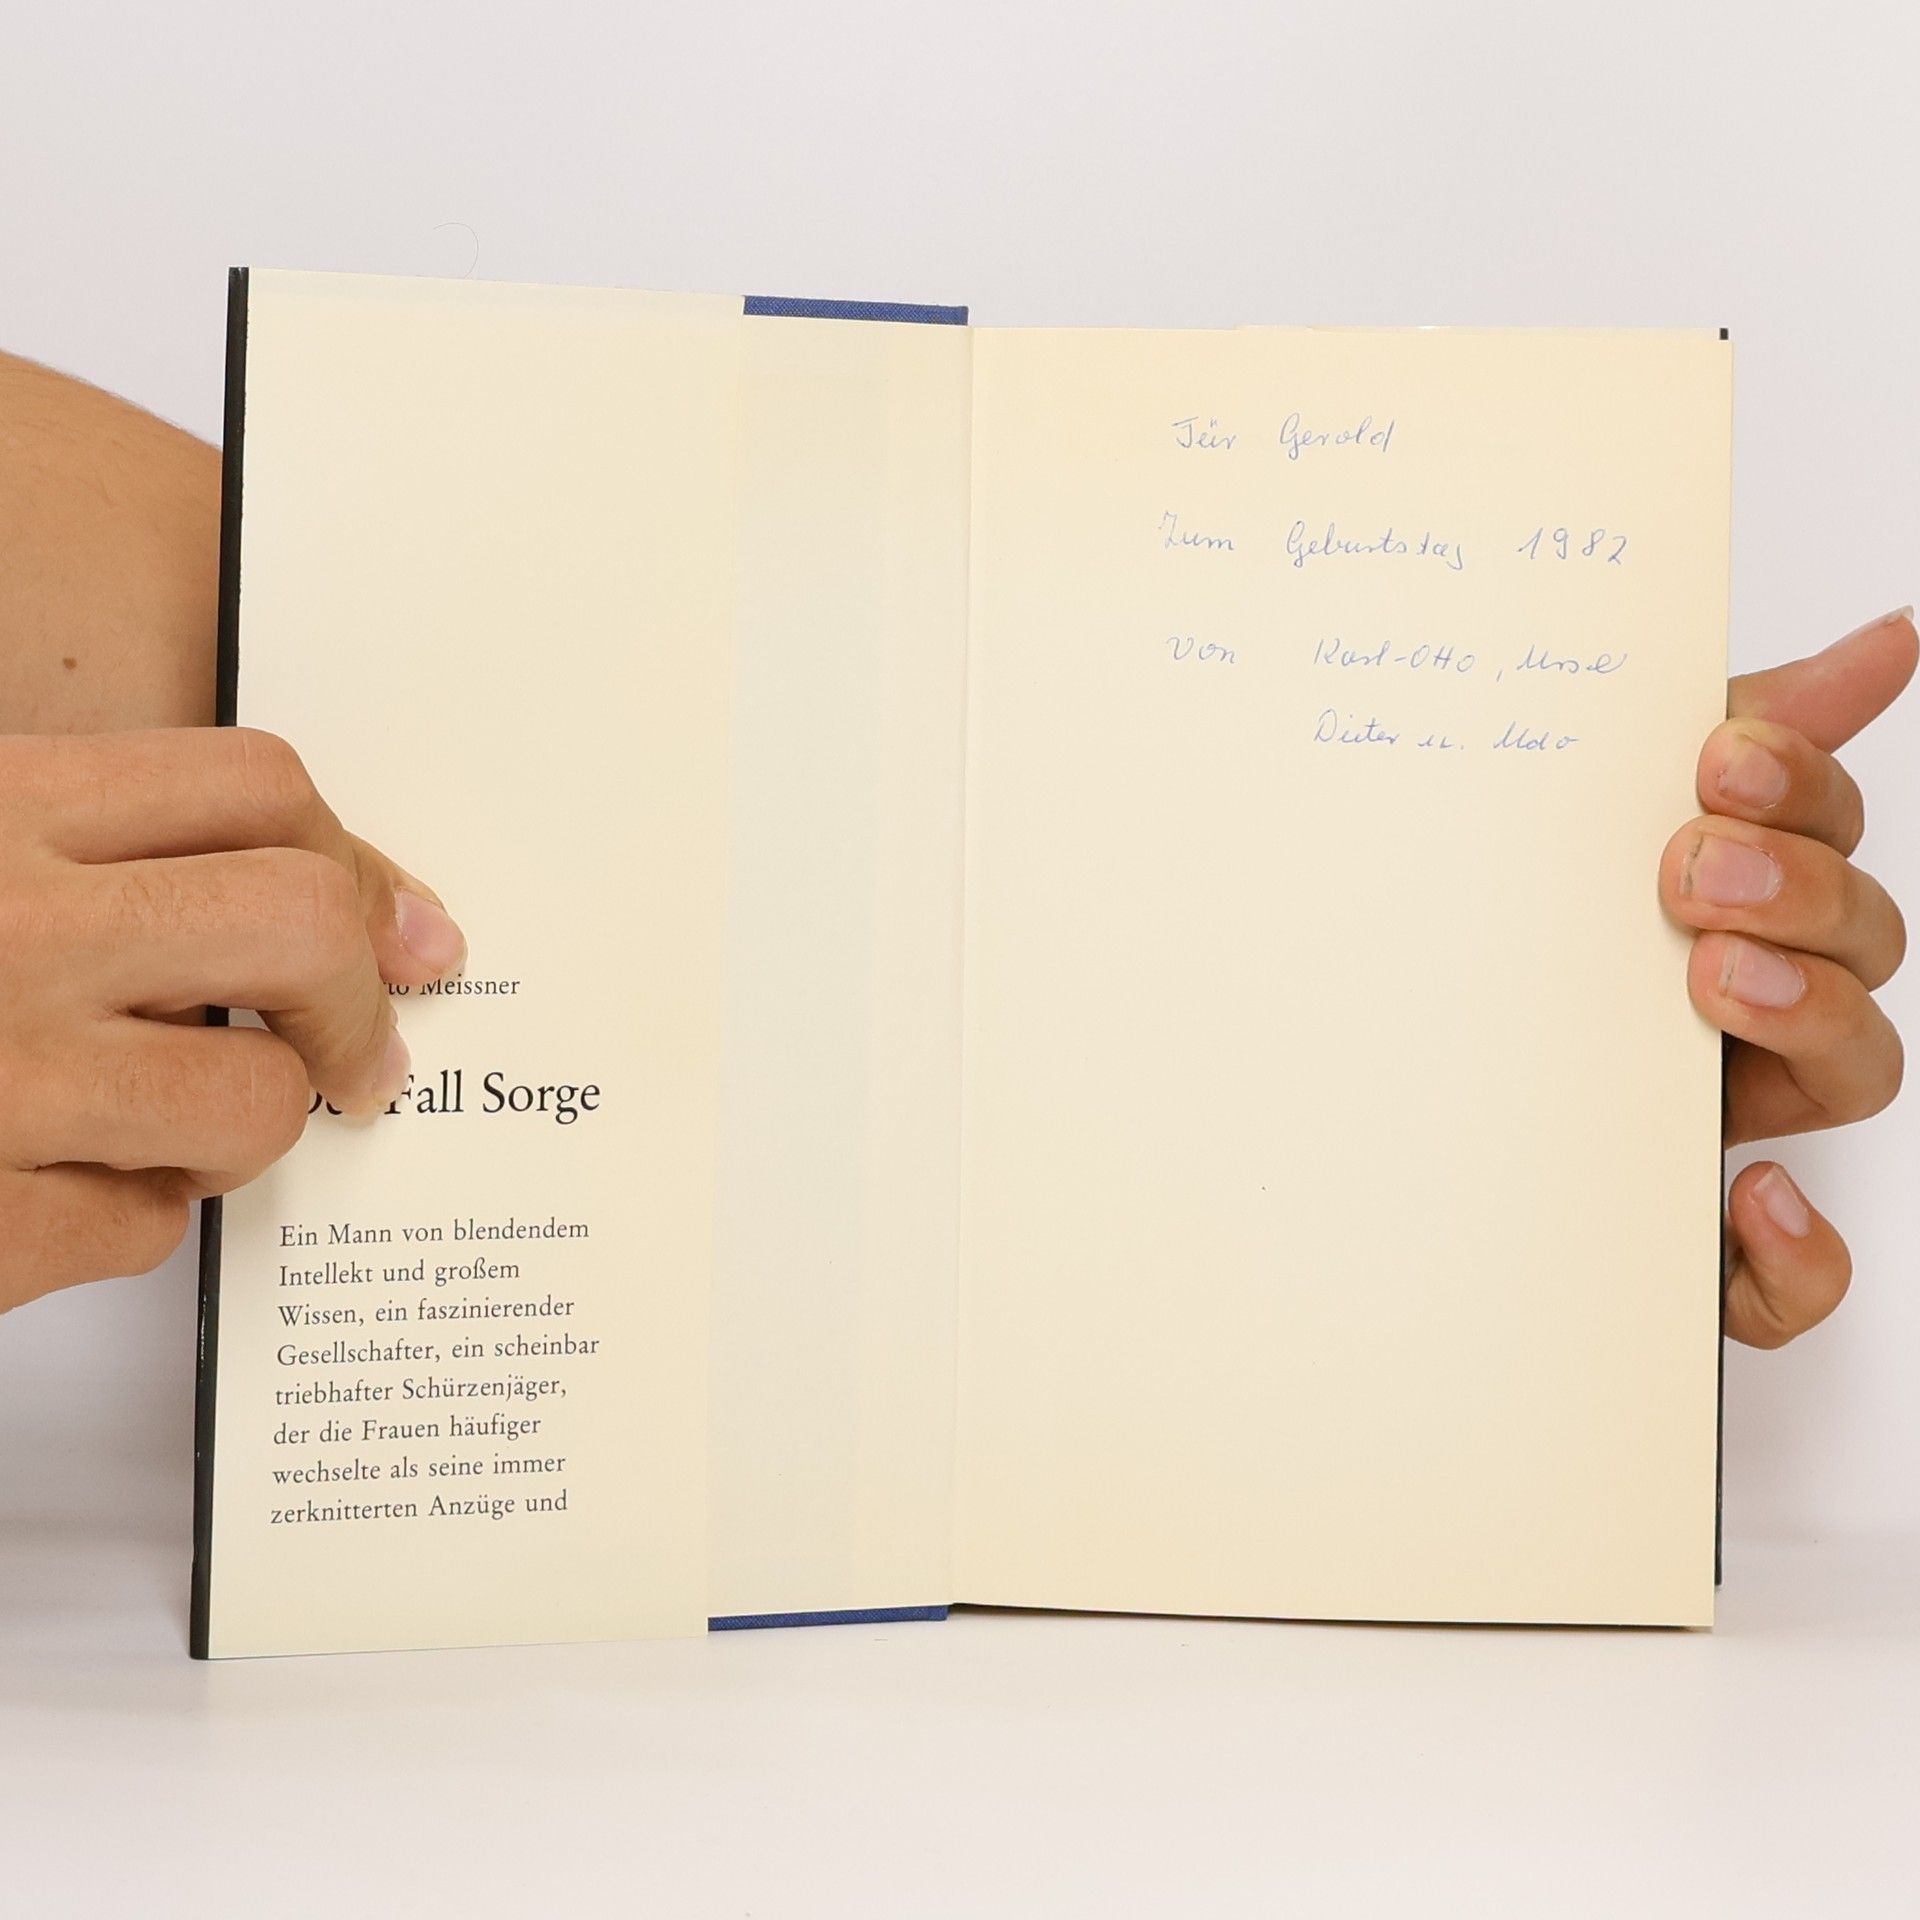 Meissner
Fall Sorge
Ein Mann von blendendem
Intellekt und großem
Wissen, ein faszinierender
Gesellschafter, ein scheinbar
triebhafter Schürzenjäger,
der die Frauen häufiger
wechselte als seine immer
zerknitterten Anzüge und
Für Gerold
Zum Geburtstag 1982
von Karl-Otto, Ursel
Dieter u. Udo